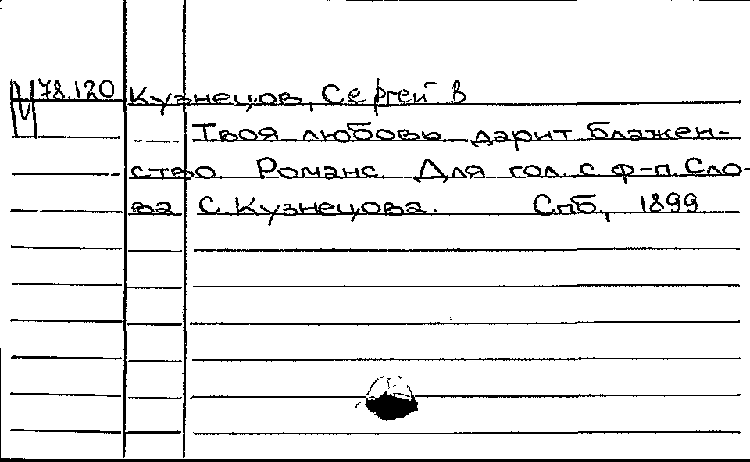 М78.120 Кузнецов, Сергей В
Твоя любовь дарит блажен-
ство. Романс. Для гол. с ф-п. Сло-
ва С. Кузнецова. Спб, 1899